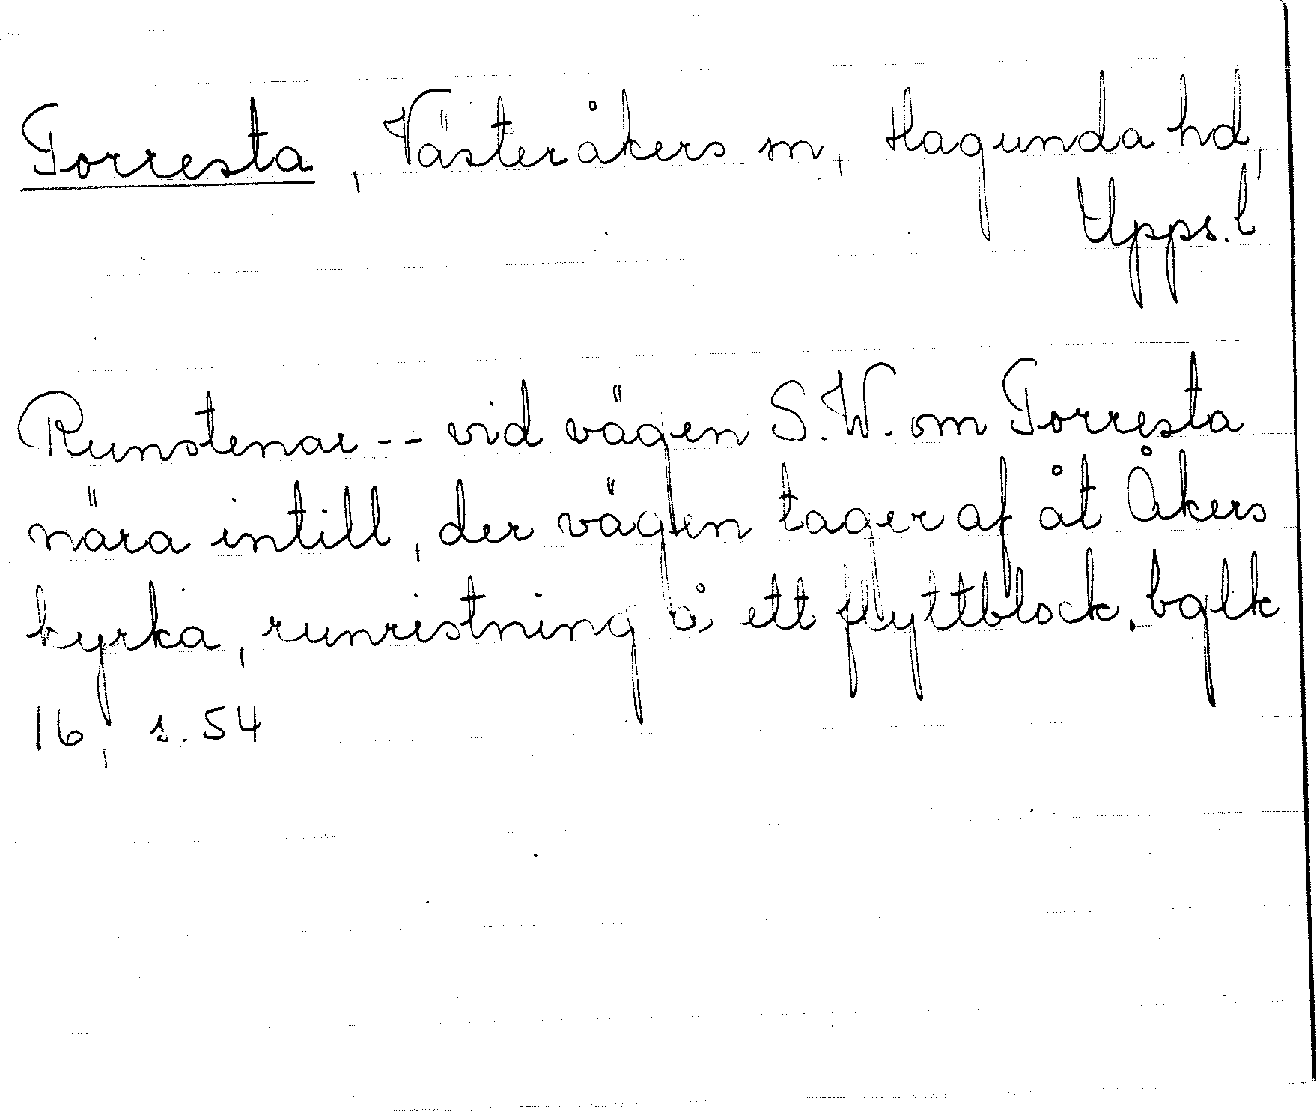 Torresta, Västeråkers sn, Hagunda hd,
Upps. l
Runstenar -- vid vägen S.W. om Torresta
nära intill, der vägen tager af åt Åkers
kyrka, runristning å ett flyttblock. bglk
16, s. 54